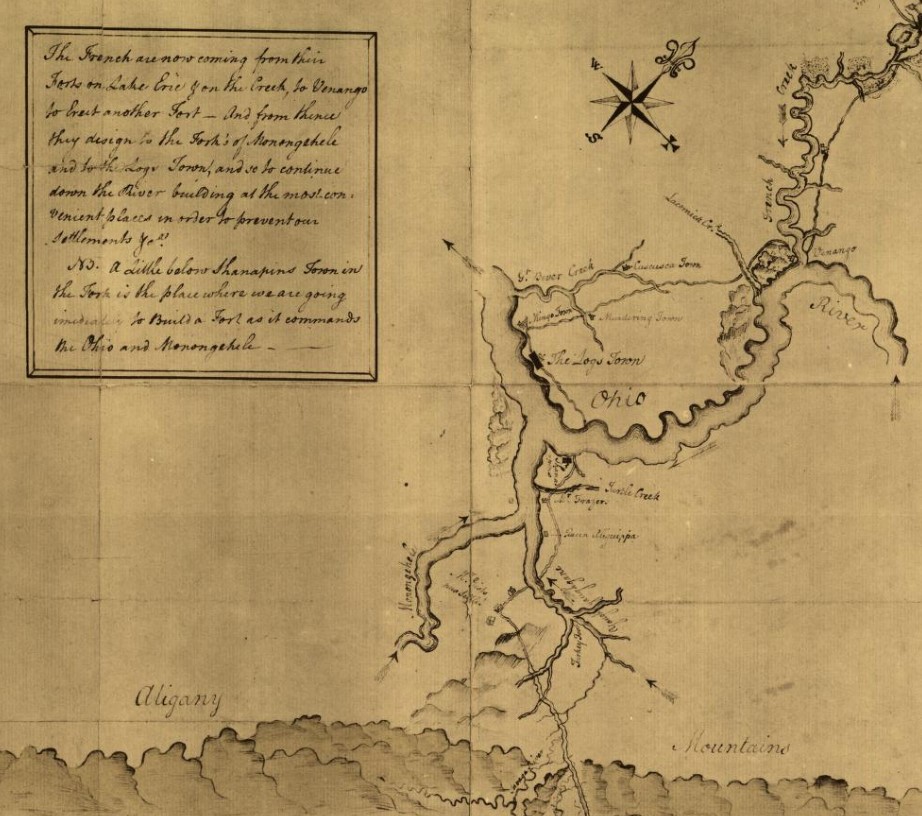 The French are now coming from their
Forts on Lake Erie & on the Creek, to Venango
to Erect another Fort — And from thence
they design to the Fork's of Monongehele
and to the Logs Town, and so to continue
down the River building at the most con-
venient places in order to prevent our
Settlements &ca
NB. A Little below Shanapins Town in
the Fork is the place where we are going
imediately to Build a Fort as it commands
the Ohio and Monongehele —
French Creek
Venango
River
Gt. Bever Creek
Cuscusca Town
Kings Town
Murdering Town
The Logs Town
Ohio
Turtle Creek
Mr. Frazer
Queen
Monongehele
Aligany
Mountains